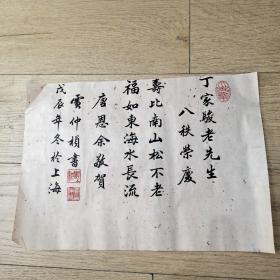 丁家駿老先生
八秩榮慶
壽比南山松不老
福如東海水長流
唐恩余敬賀
雲仲楨書
戊辰年冬於上海